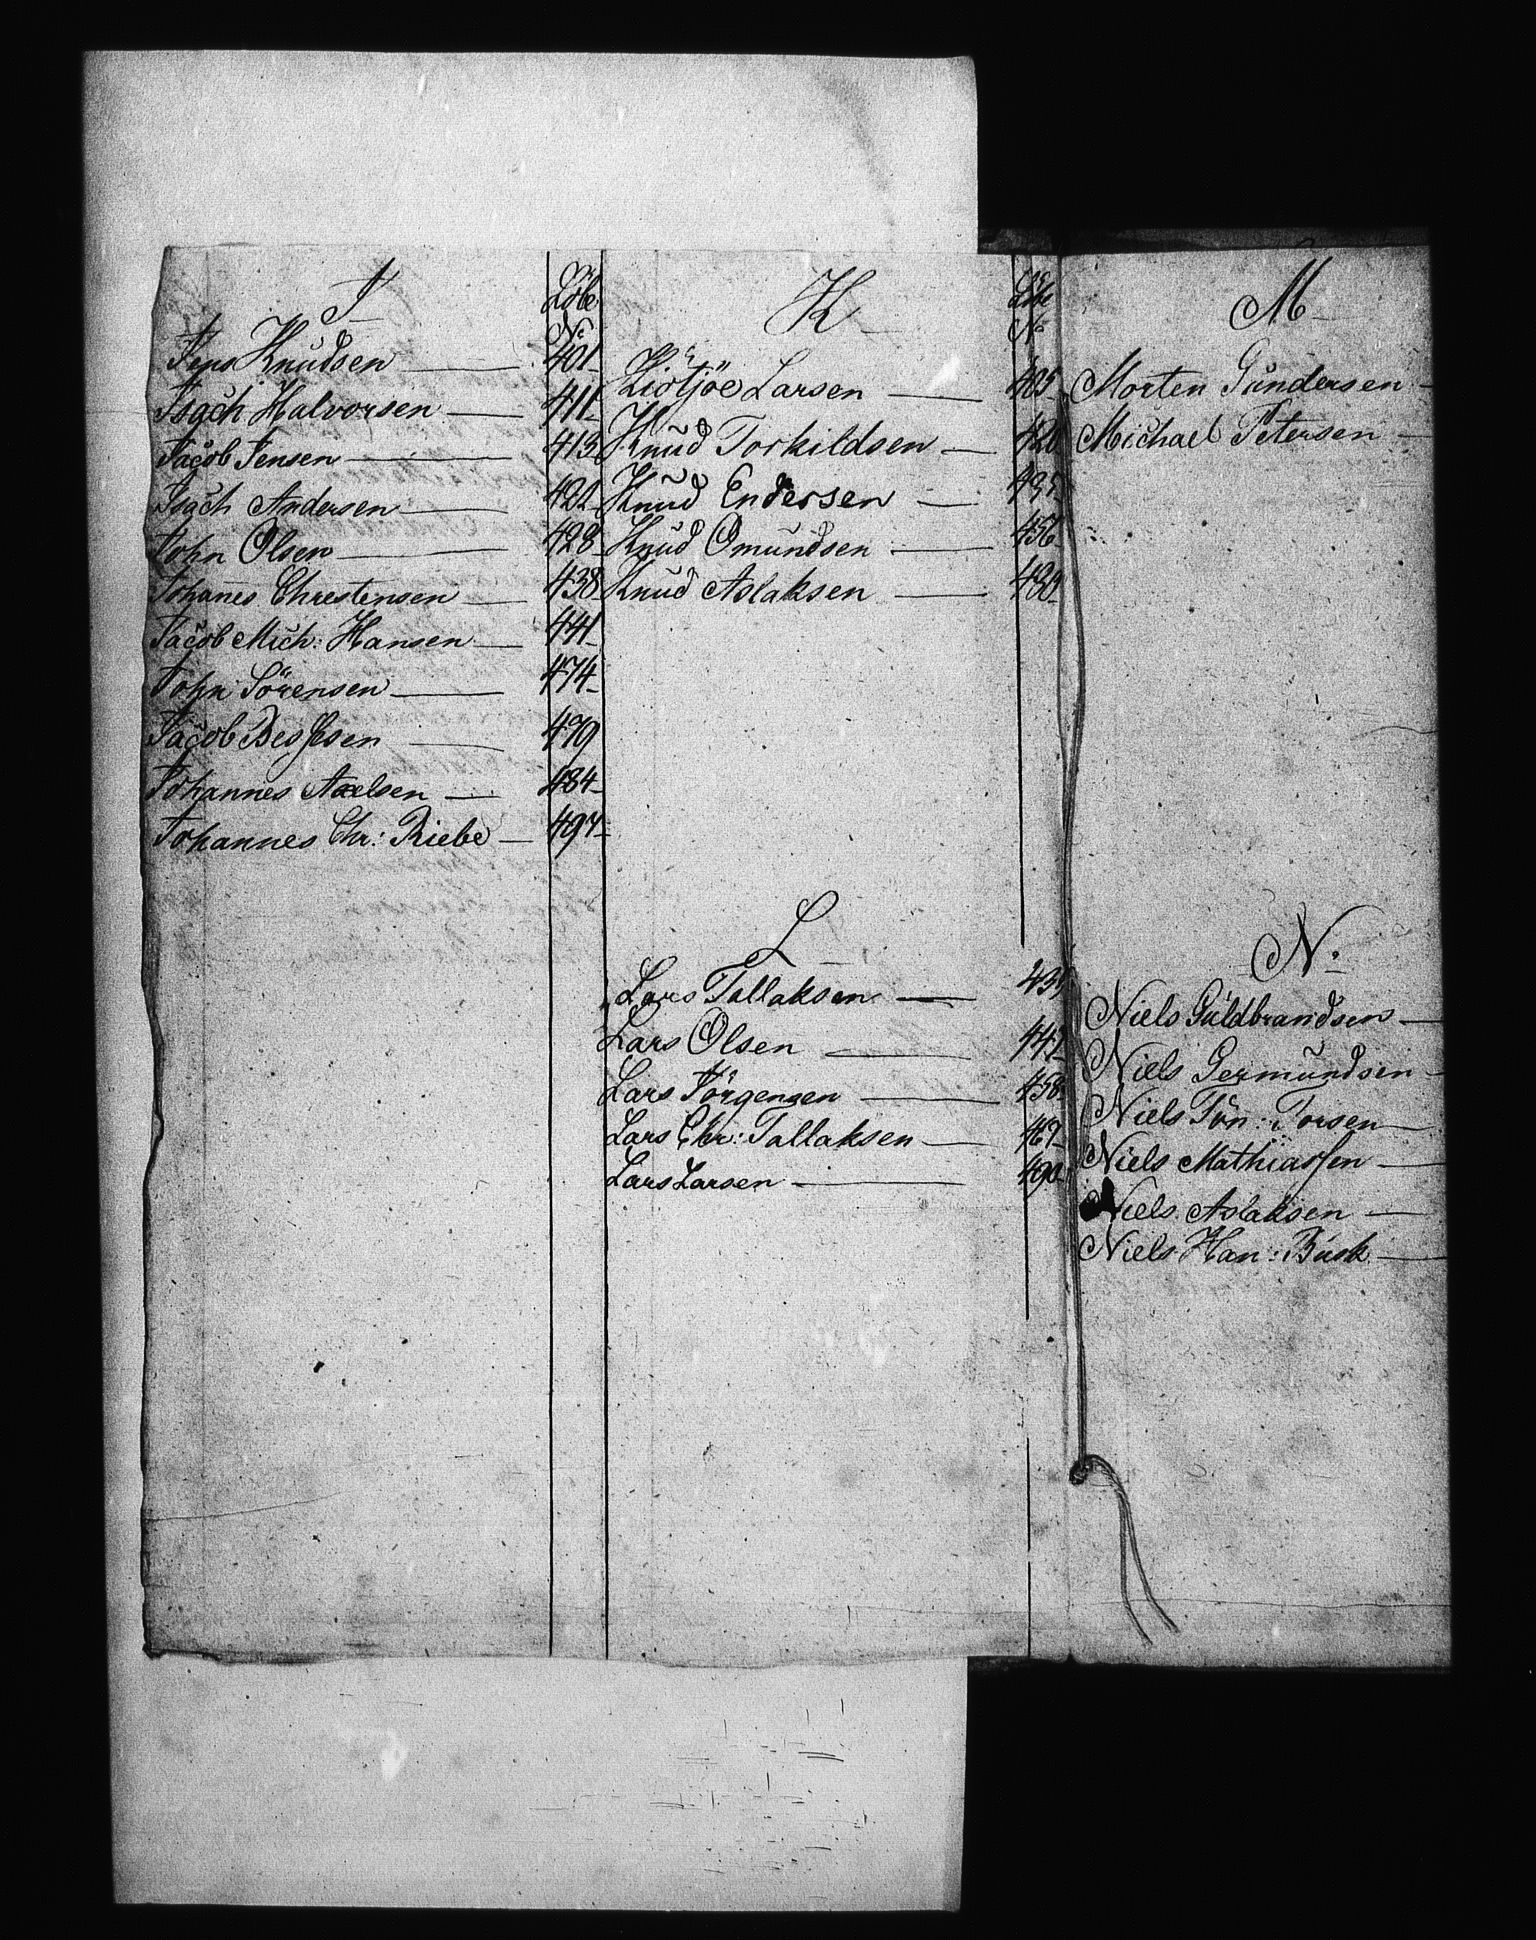 J
Löbe
No
Jens Knudsen 401
Isach Halvorsen 411
Jacob Jensen 413
Isach Andersen 422
John Olsen 428
Johanes Chrestensen 438
Jacob Mich: Hansen 441
John Sörensen 474
Jacob Besssen 479
Johannes Axelsen 484
Johannes Chr: Riebe 497
K
Löbe
No
Larsen 405
Knud Torkildsen 420
Knud Endersen
Knud Omundsen 456
Knud Aslaksen
L
Lars Tallaksen
Lars Olsen
Lars Jörgensen 458
Lars Chr: Tallaksen 467
Lars Larsen 490
M
Morten Gundersen
Michael Petersen
N.
Niels Guldbrandsen
Niels Germundsen
Niels Tön: Torsen
Niels Mathiassen
Niels Aslaksen
Niels Han: Busk